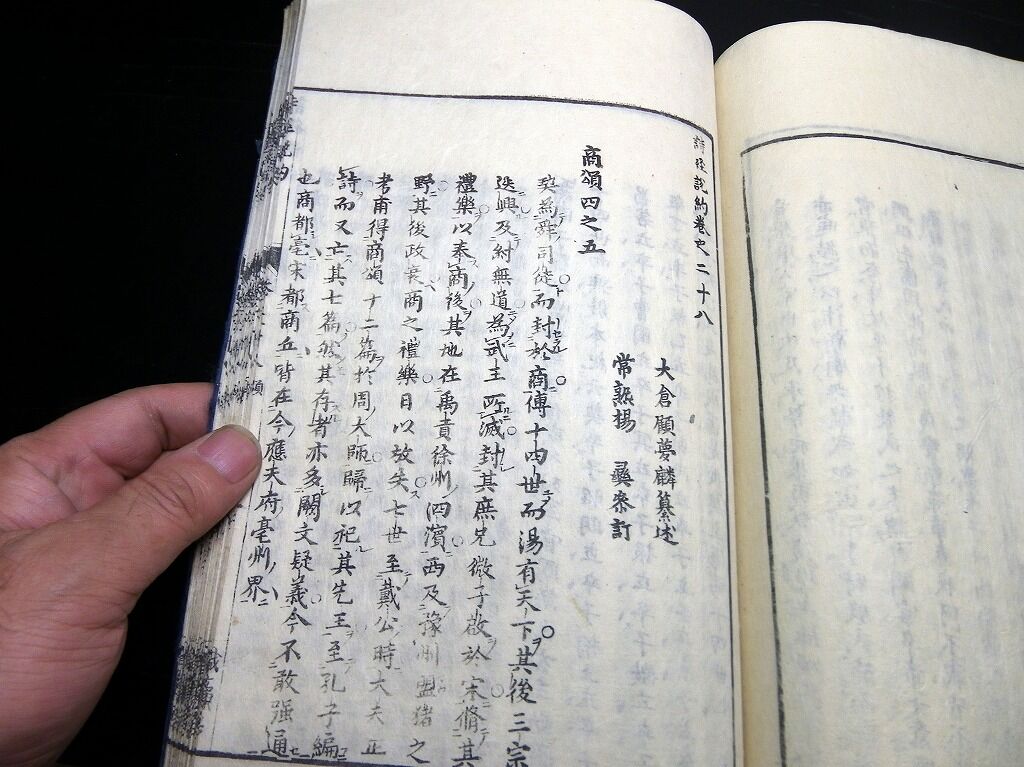 詩經説約卷之二十八
大倉顧夢麟纂述
常熟楊彝參訂
商頌四之五
契為舜司徒而封於商傳十四世而湯有天下其後三宗
迭興及紂無道為武王所滅封其庶兄微子啟於宋脩其
禮樂以奉商後其地在禹貢徐州泗濱西及豫州盟猪之
野其後政衰商之禮樂日以放失七世至戴公時大夫正
考甫得商頌十二篇於周大師歸以祀其先王至孔子編
詩而又亡其七篇然其存者亦多闕文疑義今不敢强通
也商都亳宋都商丘皆在今應天府亳州界